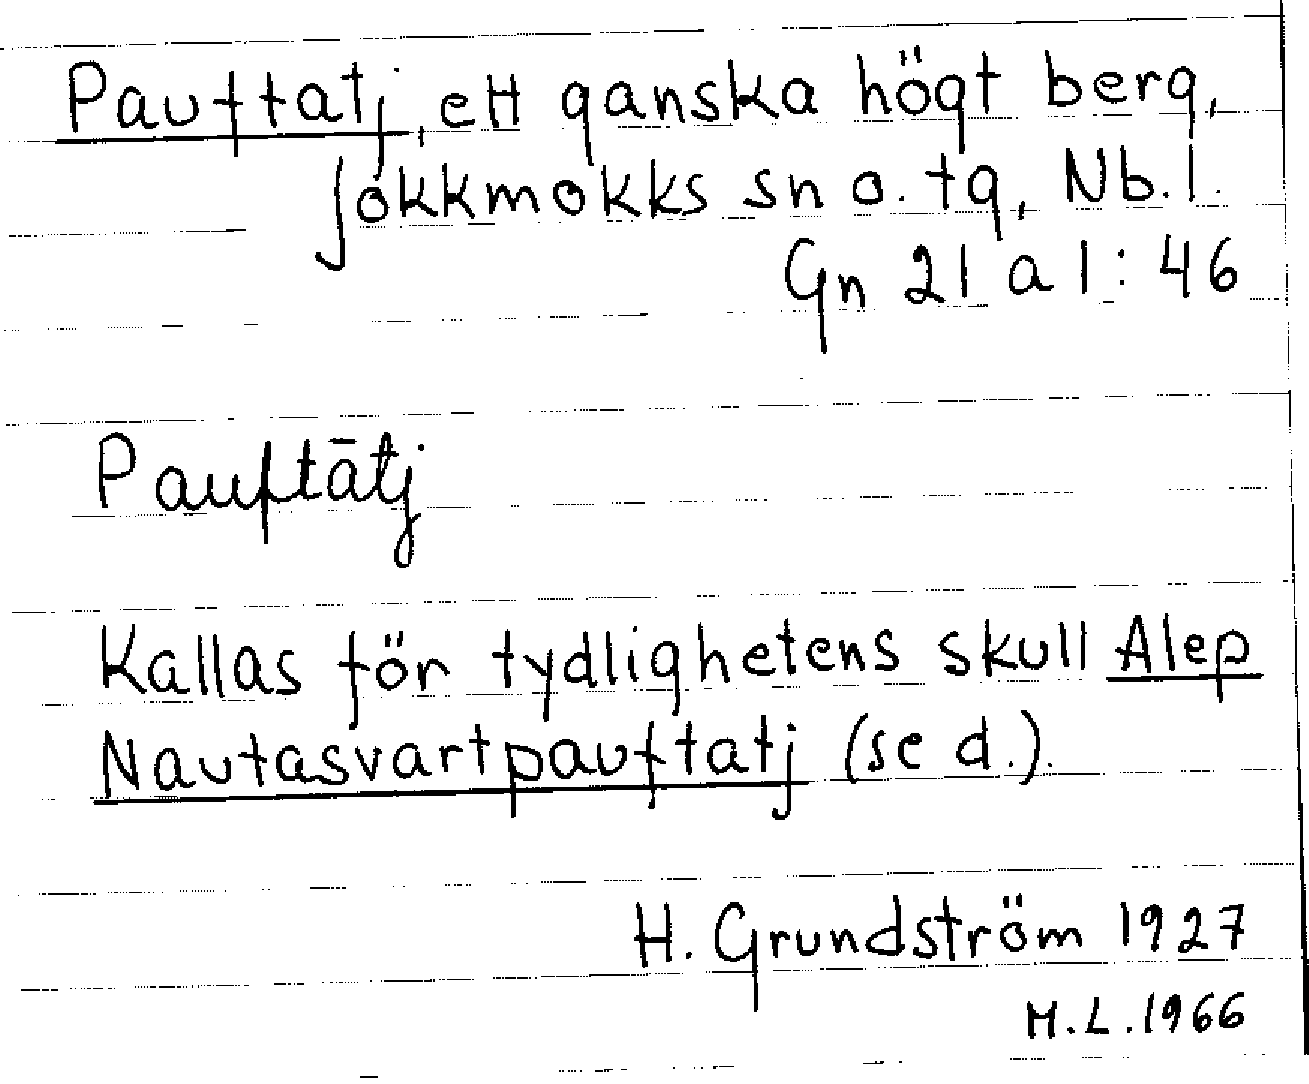 Pauftatj, ett ganska högt berg,
Jokkmokks sn o. tg, Nb. l.
Gn 21 a 1: 46
Pauftātj
Kallas för tydlighetens skull Alep
Nautasvartpauftatj (se d.).
H. Grundström 1927
M.L. 1966